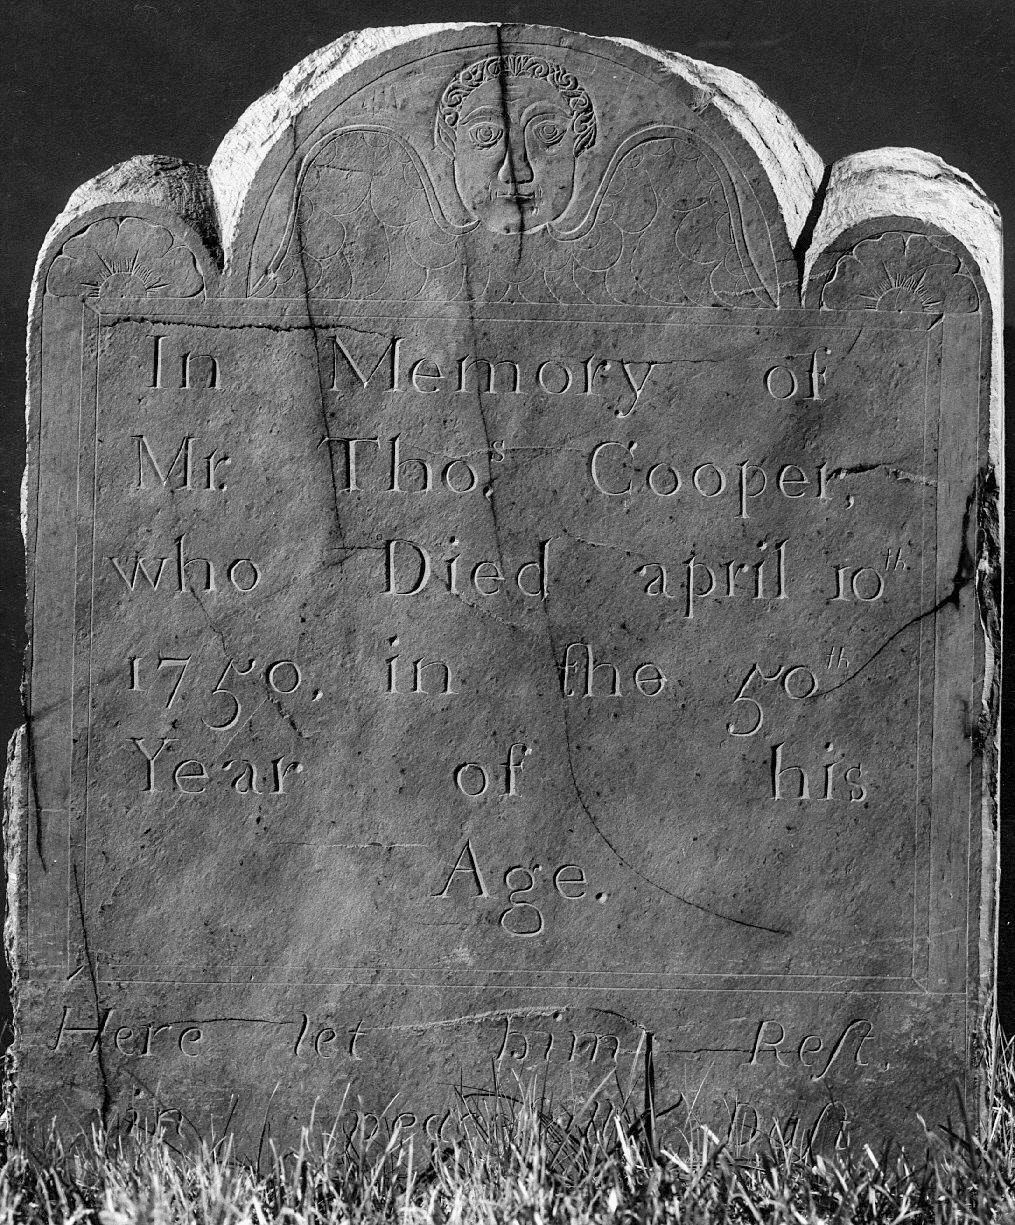 In Memory of
Mr. Thoˢ Cooper,
who Died april 10ᵗʰ
1750, in the 50ᵗʰ
Year of his
Age.
Here let him Reſt.
in Duſt